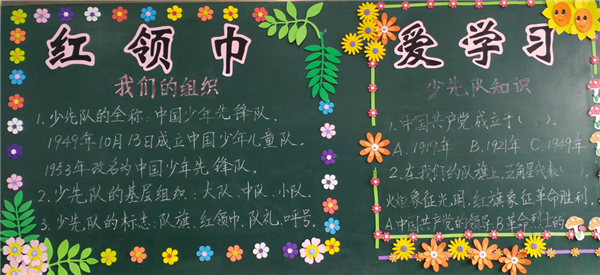 红领巾
我们的组织
1.少先队的全称:中国少年先锋队。
1949年10月13日成立中国少年儿童队。
1953年改名为中国少年先锋队。
2.少先队的基层组织:大队、中队、小队。
3.少先队的标志:队旗、红领巾、队礼、呼号。
爱学习
少先队知识
1.中国共产党成立于( )。
A.1919年 B.1921年 C.1949年
2.在我们的队旗上,五角星代表( ),
火炬象征光明,红旗象征革命胜利。
A.中国共产党的领导 B.革命烈士的